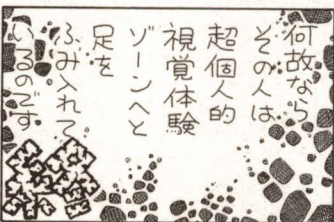 何故なら
その人は
超個人的
視覚体験
ゾーンへと
足を
ふみ入れて
いるのです